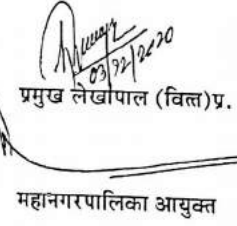 03/12/2020
प्रमुख लेखापाल (वित्त)प्र.
महानगरपालिका आयुक्त